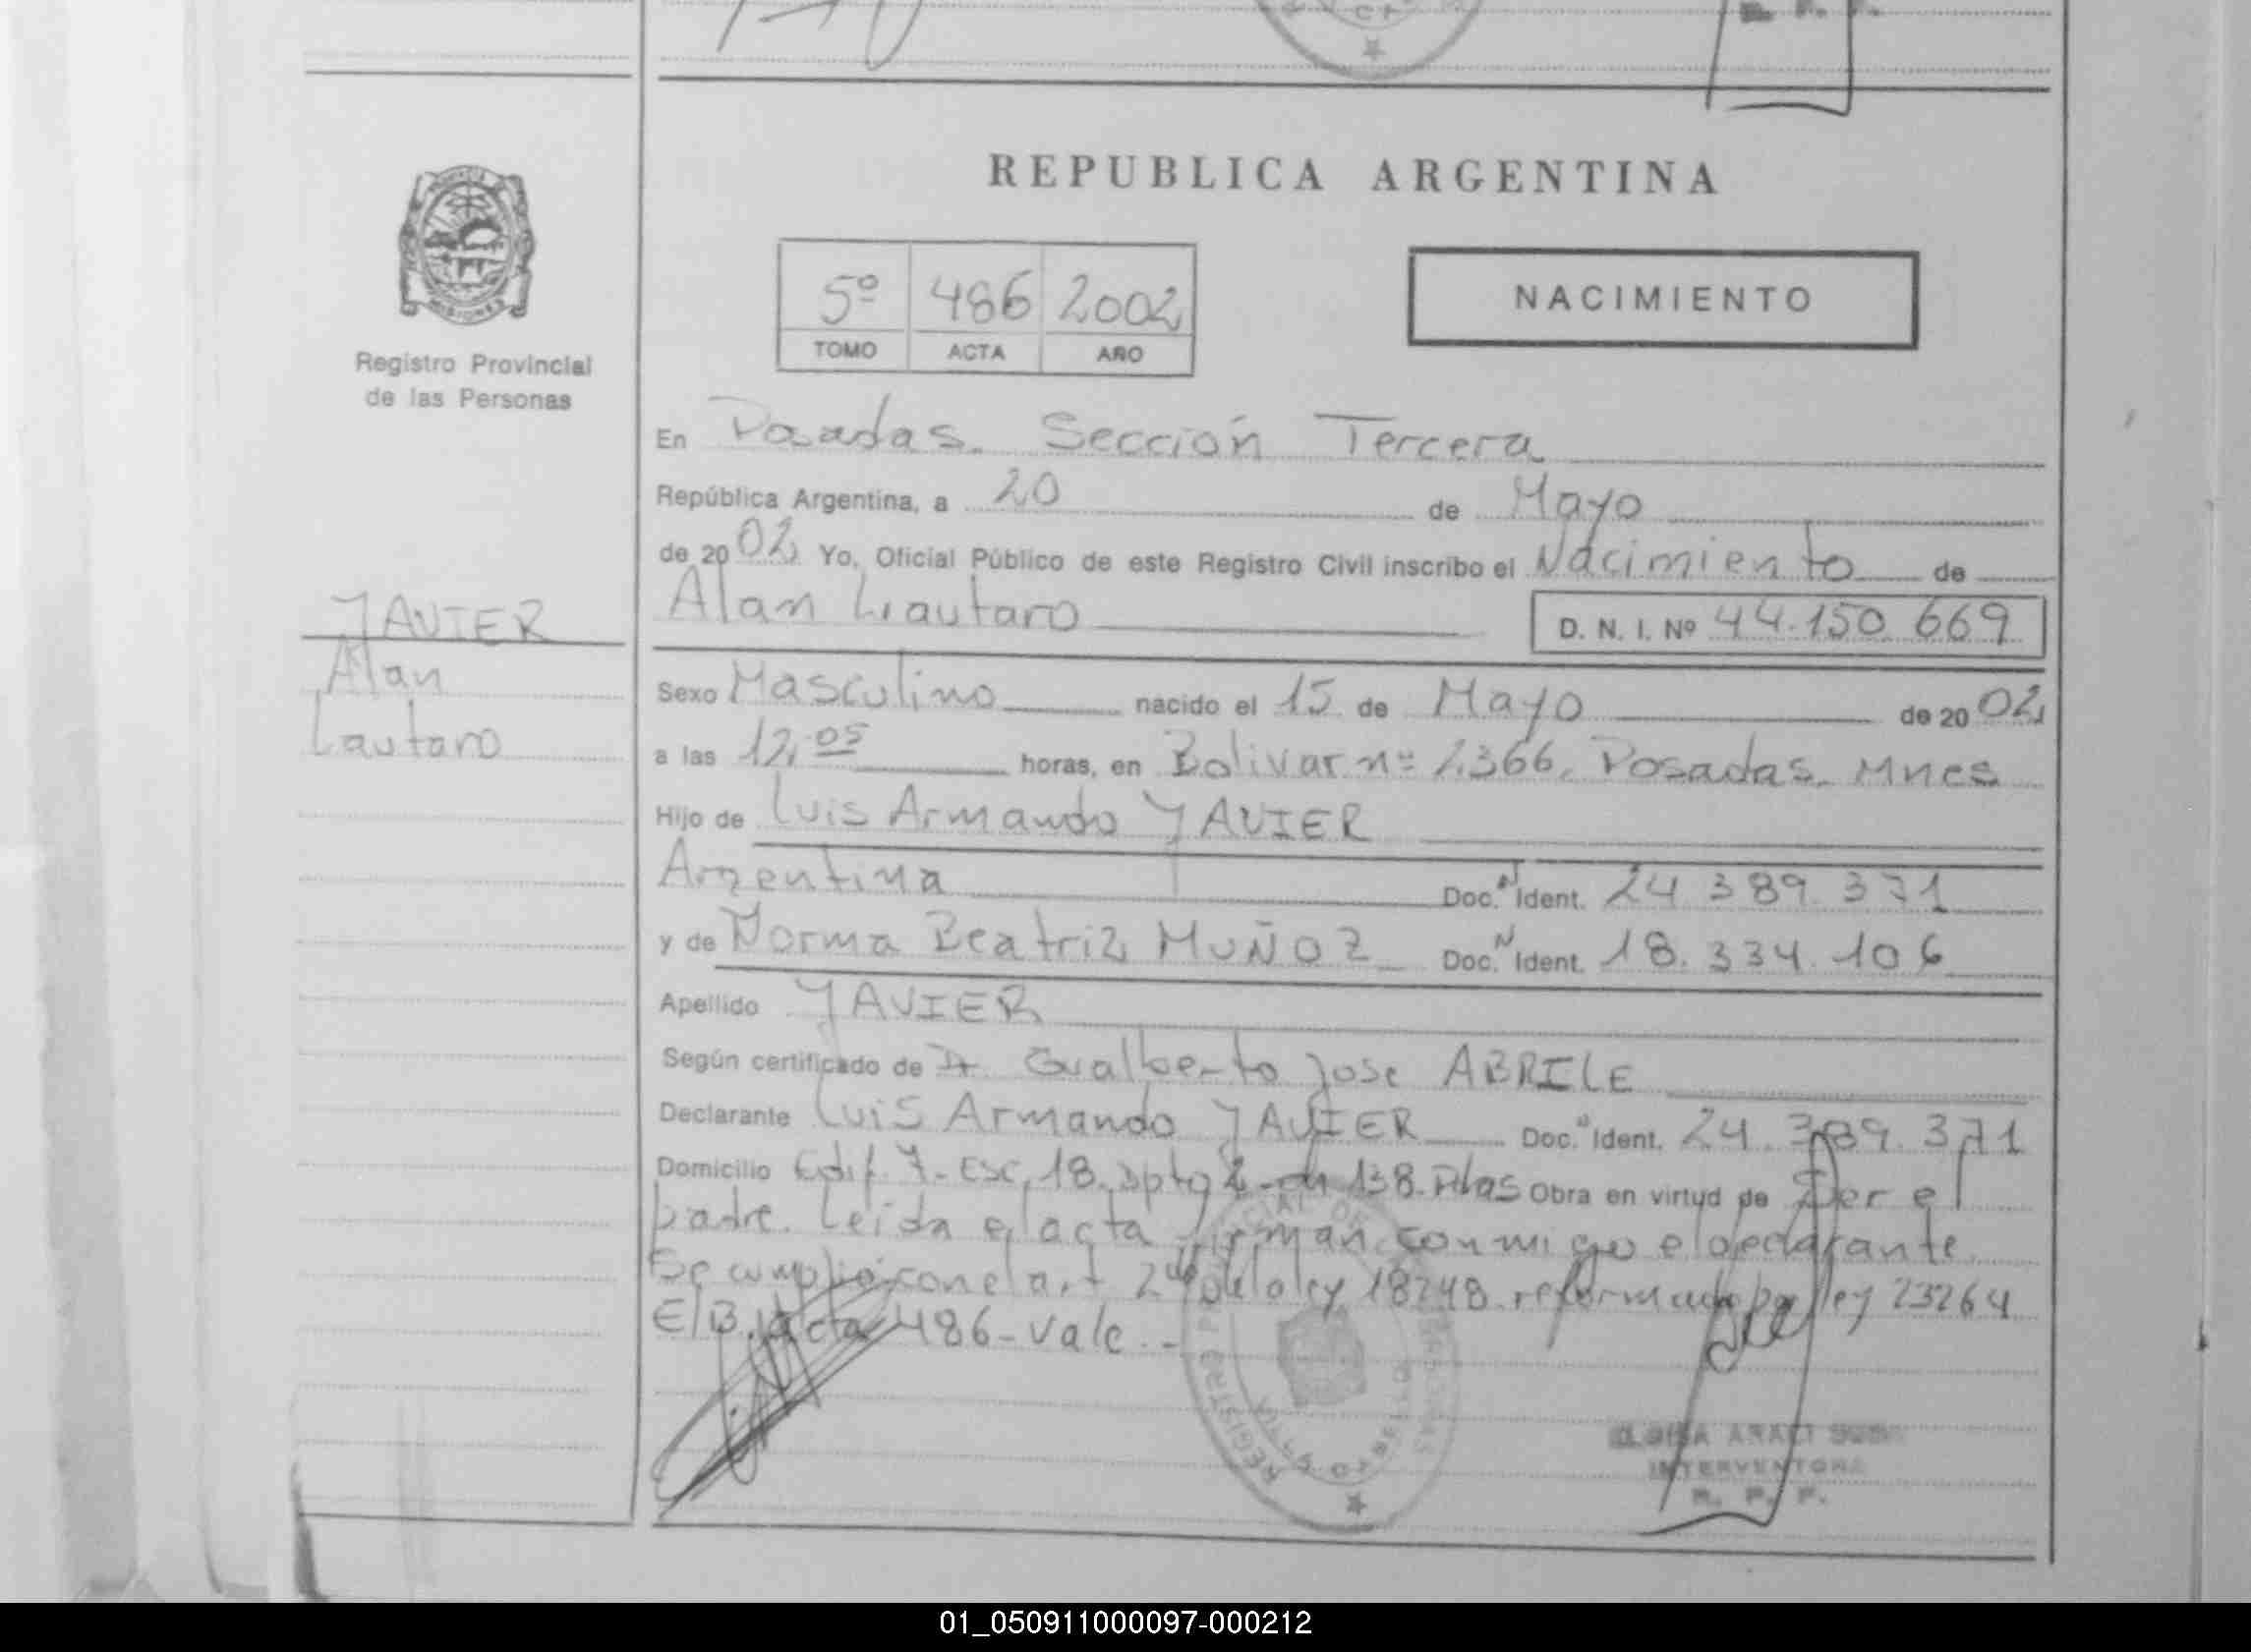 REPUBLICA ARGENTINA
MISIONES
Registro Provincial
de las Personas
5º 486 2002
TOMO ACTA AÑO
NACIMIENTO
En Posadas. Sección Tercera
República Argentina, a 20 de Mayo
de 2002 Yo, Oficial Público de este Registro Civil inscribo el Nacimiento de
JAVIER
Alan
Lautaro
Alan Lautaro D. N. I. Nº 44.150.669
Sexo Masculino nacido el 15 de Mayo de 2002
a las 12,05 horas, en Bolivar nº 2366, Posadas. Mnes
Hijo de Luis Armando JAVIER
Argentina Doc. N Ident. 24.389.371
y de Norma Beatriz MUÑOZ Doc. N Ident. 18.334.106
Apellido JAVIER
Según certificado de Dr. Gualberto José ABRILE
Declarante Luis Armando JAVIER Doc. Ident. 24.389.371
Domicilio Edif. 7- Esc. 18. Dpto 138. Obra en virtud de Ser el
padre. Leida el acta firman conmigo el declarante.
Se cumplió con el art 2 de la ley 18248 reformado por ley 23264
E/B. acta 486-Vale.-
INTERVENTORA
R. P. P.
01_050911000097-000212